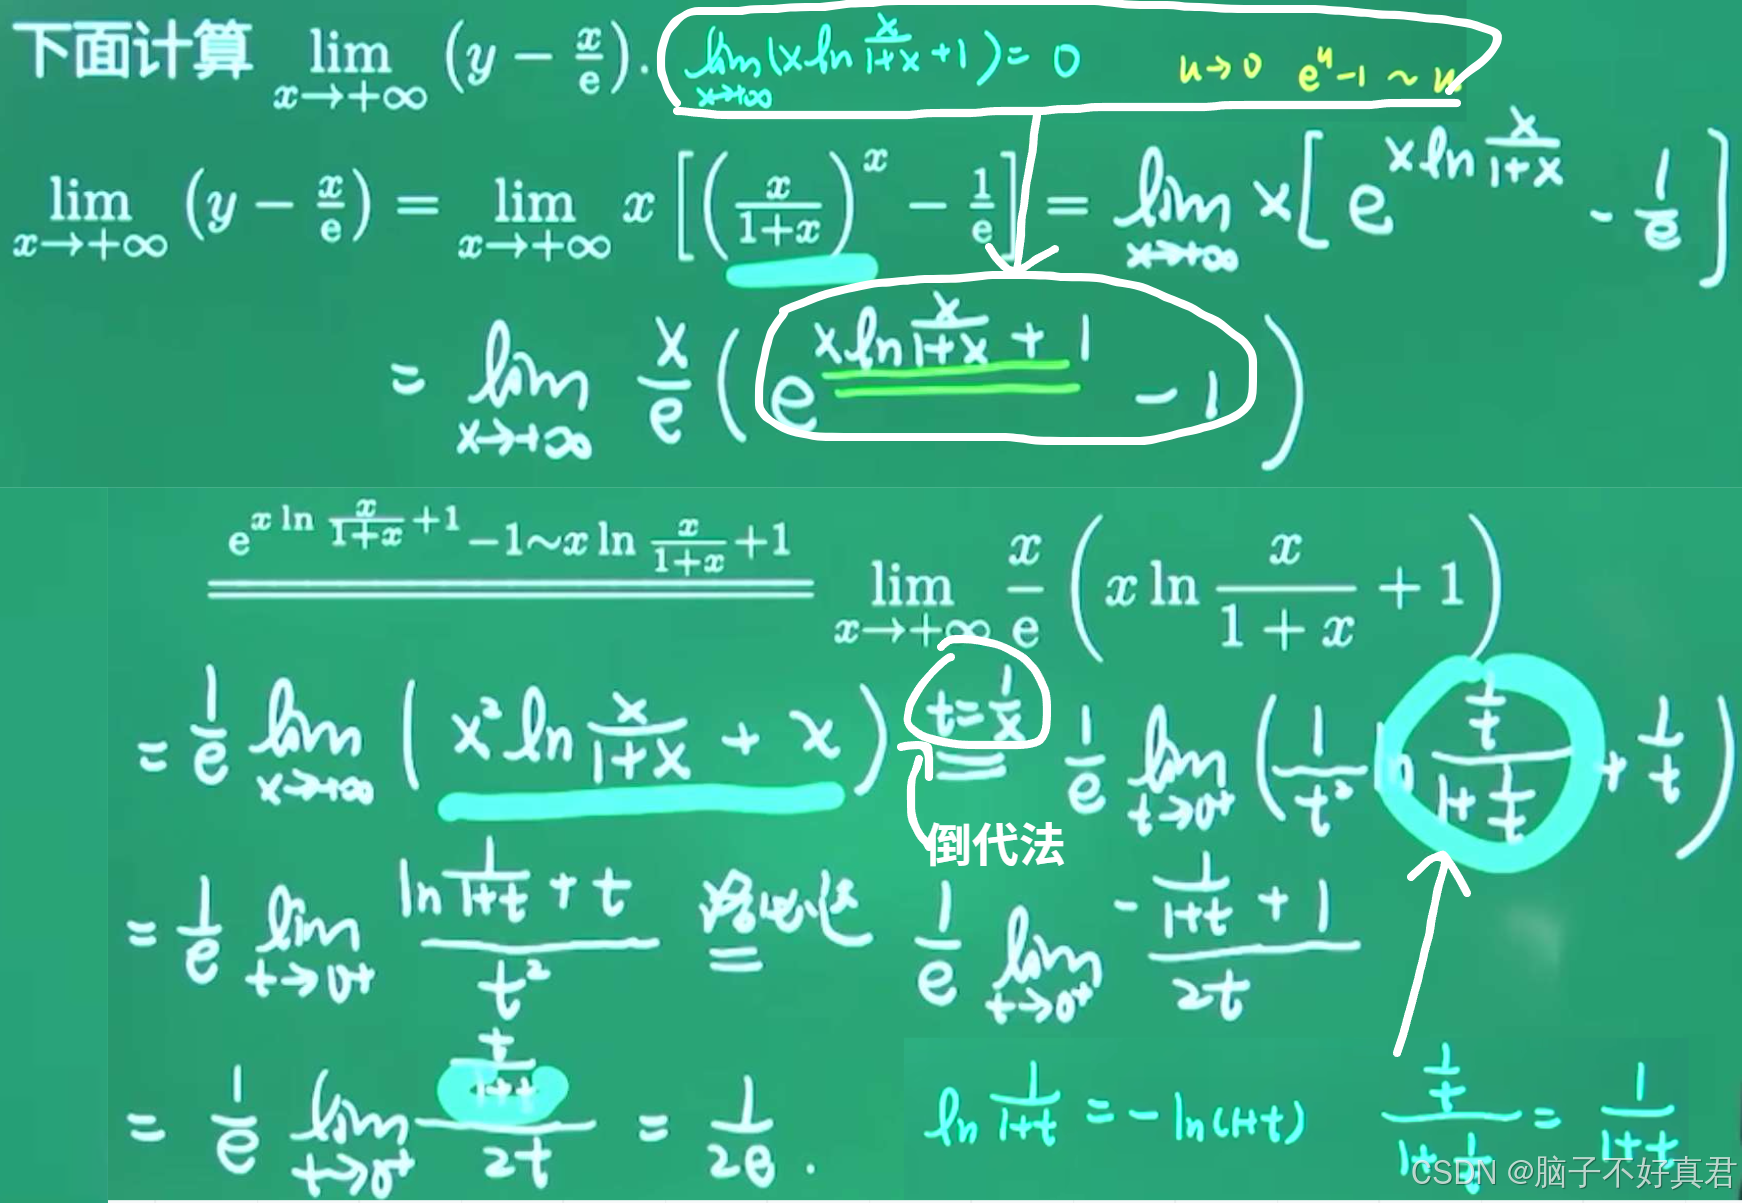 下面计算 lim x→+∞ (y − x/e). lim x→+∞ (x ln x/(1+x) + 1) = 0 u→0 e^u − 1 ~ u
lim x→+∞ (y − x/e) = lim x→+∞ x [ (x/(1+x))^x − 1/e ] = lim x→+∞ x [ e^(x ln x/(1+x)) − 1/e ]
= lim x→+∞ x/e ( e^(x ln x/(1+x) + 1) − 1 )
e^(x ln x/(1+x) + 1) − 1 ~ x ln x/(1+x) + 1 lim x→+∞ x/e ( x ln x/(1+x) + 1 )
= 1/e lim x→+∞ ( x² ln x/(1+x) + x ) t = 1/x = 1/e lim t→0⁺ ( 1/t² ln (1/t)/(1 + 1/t) + 1/t )
倒代法
= 1/e lim t→0⁺ (ln 1/(1+t) + t)/t² 洛必达 = 1/e lim t→0⁺ (−1/(1+t) + 1)/2t
= 1/e lim t→0⁺ (t/(1+t))/2t = 1/2e .
ln 1/(1+t) = −ln(1+t) (1/t)/(1 + 1/t) = 1/(1+t)
CSDN @脑子不好真君